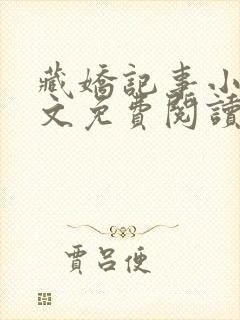 藏嬌記事小
文免費閱讀
賈呂便